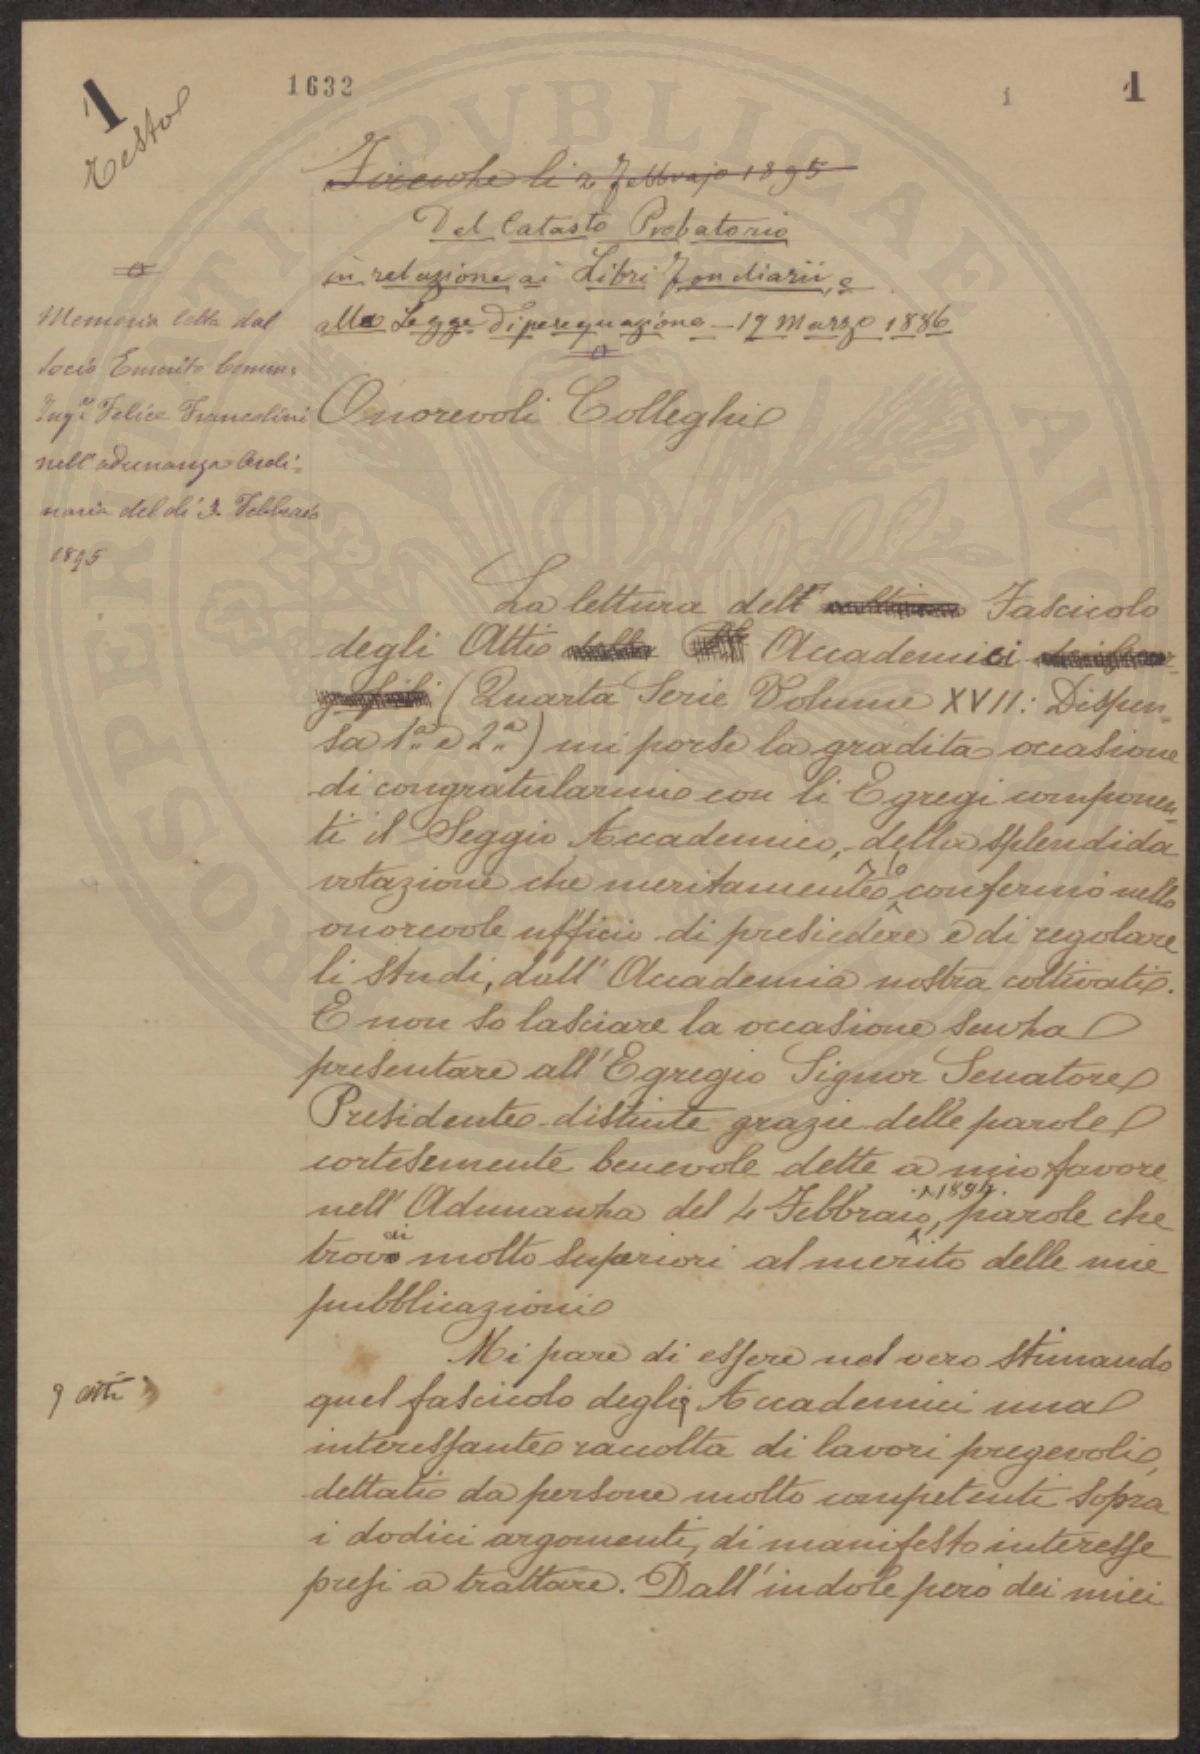 1
Testo
1632
1
1
Firenze li 2 Febbrajo 1895
Del Catasto Probatorio
in relazione ai Libri Fondiarii, e
alla Legge di perequazione – 1º Marzo 1886
Memoria letta dal
Socio Emerito Comm:
Ingr. Felice Francolini
nell'adunanza Ordi:
naria del dì 3. Febbraio
1895
Onorevoli Colleghi
La lettura dell' Fascicolo
degli Atti Accademici
(Quarta Serie Volume XVII: Dispen-
sa 1ª e 2ª) mi porse la gradita occasione
di congratularmi con li Egregi componen-
ti il Seggio Accademico, della splendida
votazione che meritamente lo confermò nello
onorevole ufficio di presiedere e di regolare
li studi, dall' Accademia nostra coltivati.
E non so lasciare la occasione senza
presentare all' Egregio Signor Senatore
Presidente distinte grazie delle parole
cortesemente benevole dette a mio favore
nell' Adunanza del 4 Febbraio 1894, parole che
trovai molto superiori al merito delle mie
pubblicazioni
Mi pare di essere nel vero stimando
9 atti
quel fascicolo degli Accademici una
interessante raccolta di lavori pregevoli,
dettati da persone molto competenti sopra
i dodici argomenti, di manifesto interesse
presi a trattare. Dall' indole però dei miei
PROSPERITATI PVBLICAE AVGENDAE